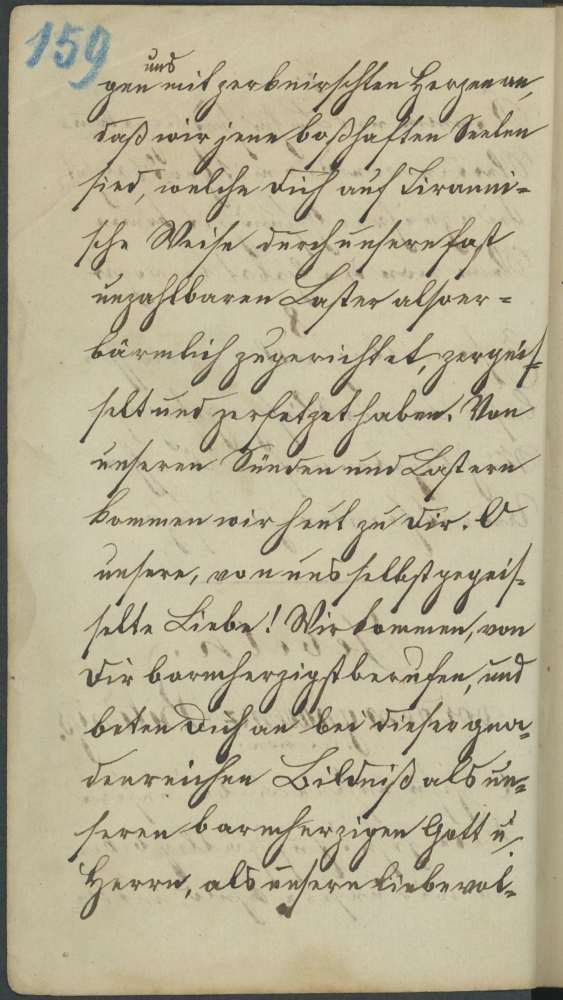 159
uns
gen mit zerknirschten Herzen an,
daß wir jene boßhaften Seelen
sied, welche dich auf Tiranni=
sche Weise durch unsere fast
unzahlbaren Laster also er=
bärmlich zugerichtet, zergeis=
selt und zerfetzet haben. Von
unseren Sünden und Lastern
kommen wir heut zu dir. O
unsere, von uns selbst gegeis=
selte Liebe! Wir kommen, von
dir barmherzigst berufen, und
beten dich an bei dieser gna=
denreichen Bildniß als un=
seren barmherzigen Gott u.
Herrn, als unsern liebevol=